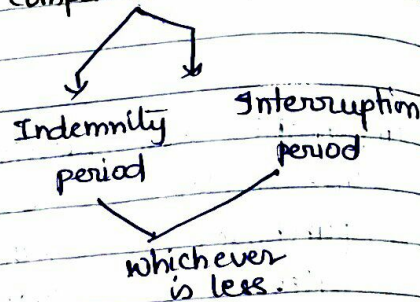 Indemnity
period
Interruption
period
whichever
is less.